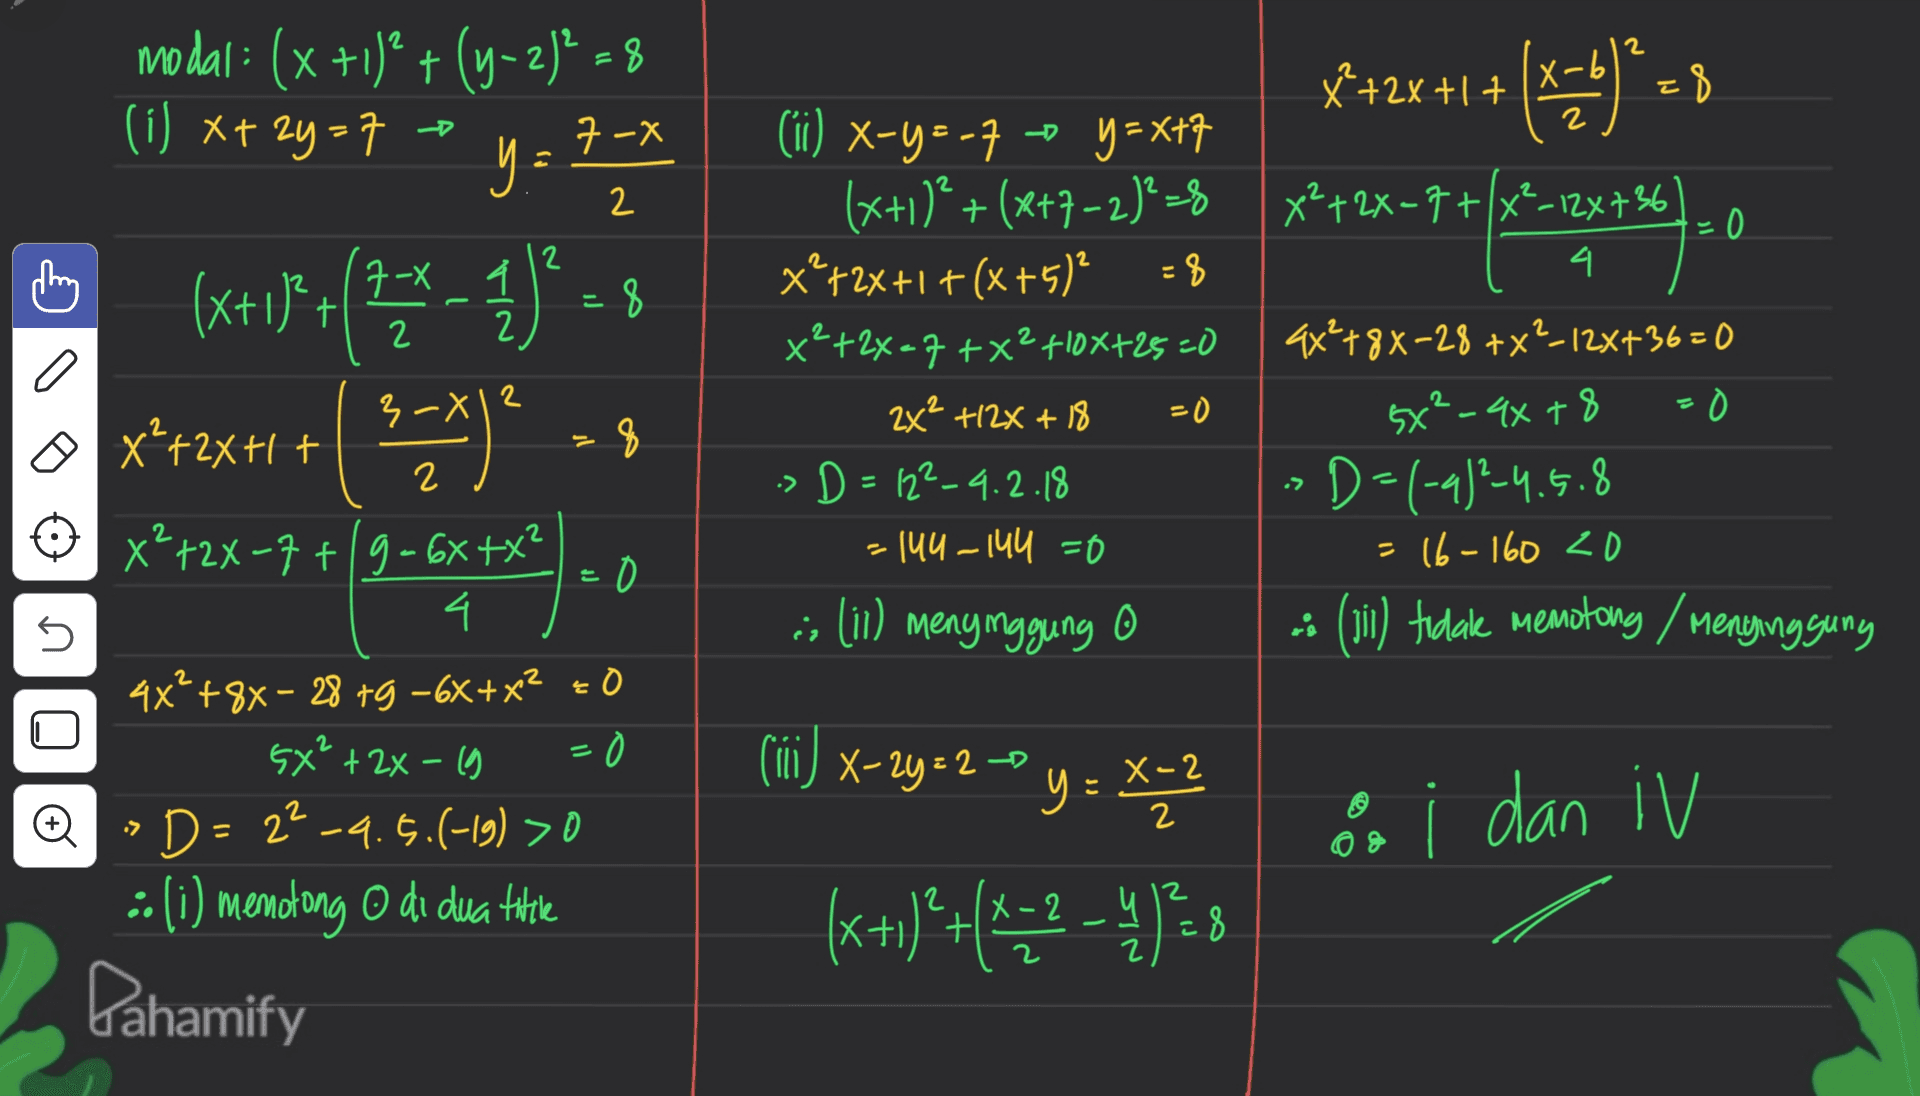 modal: (x+1)² + (y-2)² = 8
(i) x+2y=7 → y = (7-x)/2
(x+1)² + ((7-x)/2 - 4/2)² = 8
x²+2x+1 + ((3-x)/2)² = 8
x²+2x-7 + ((9-6x+x²)/4) = 0
4x²+8x-28+9-6x+x² = 0
5x²+2x-19 = 0
D = 2²-4.5.(-19) > 0
∴ (i) memotong ⊙ di dua titik
(ii) x-y=-7 → y=x+7
(x+1)² + (x+7-2)² = 8
x²+2x+1+(x+5)² = 8
x²+2x-7+x²+10x+25=0
2x²+12x+18 = 0
D = 12²-4.2.18
= 144-144 = 0
∴ (ii) menyinggung ⊙
(iii) x-2y=2 → y = (x-2)/2
(x+1)² + ((x-2)/2 - 4/2)² = 8
x²+2x+1+((x-6)/2)² = 8
x²+2x-7+((x²-12x+36)/4) = 0
4x²+8x-28+x²-12x+36=0
5x²-4x+8 = 0
D = (-4)²-4.5.8
= 16-160 < 0
∴ (iii) tidak memotong / menyinggung
∴ i dan iv
Pahamify